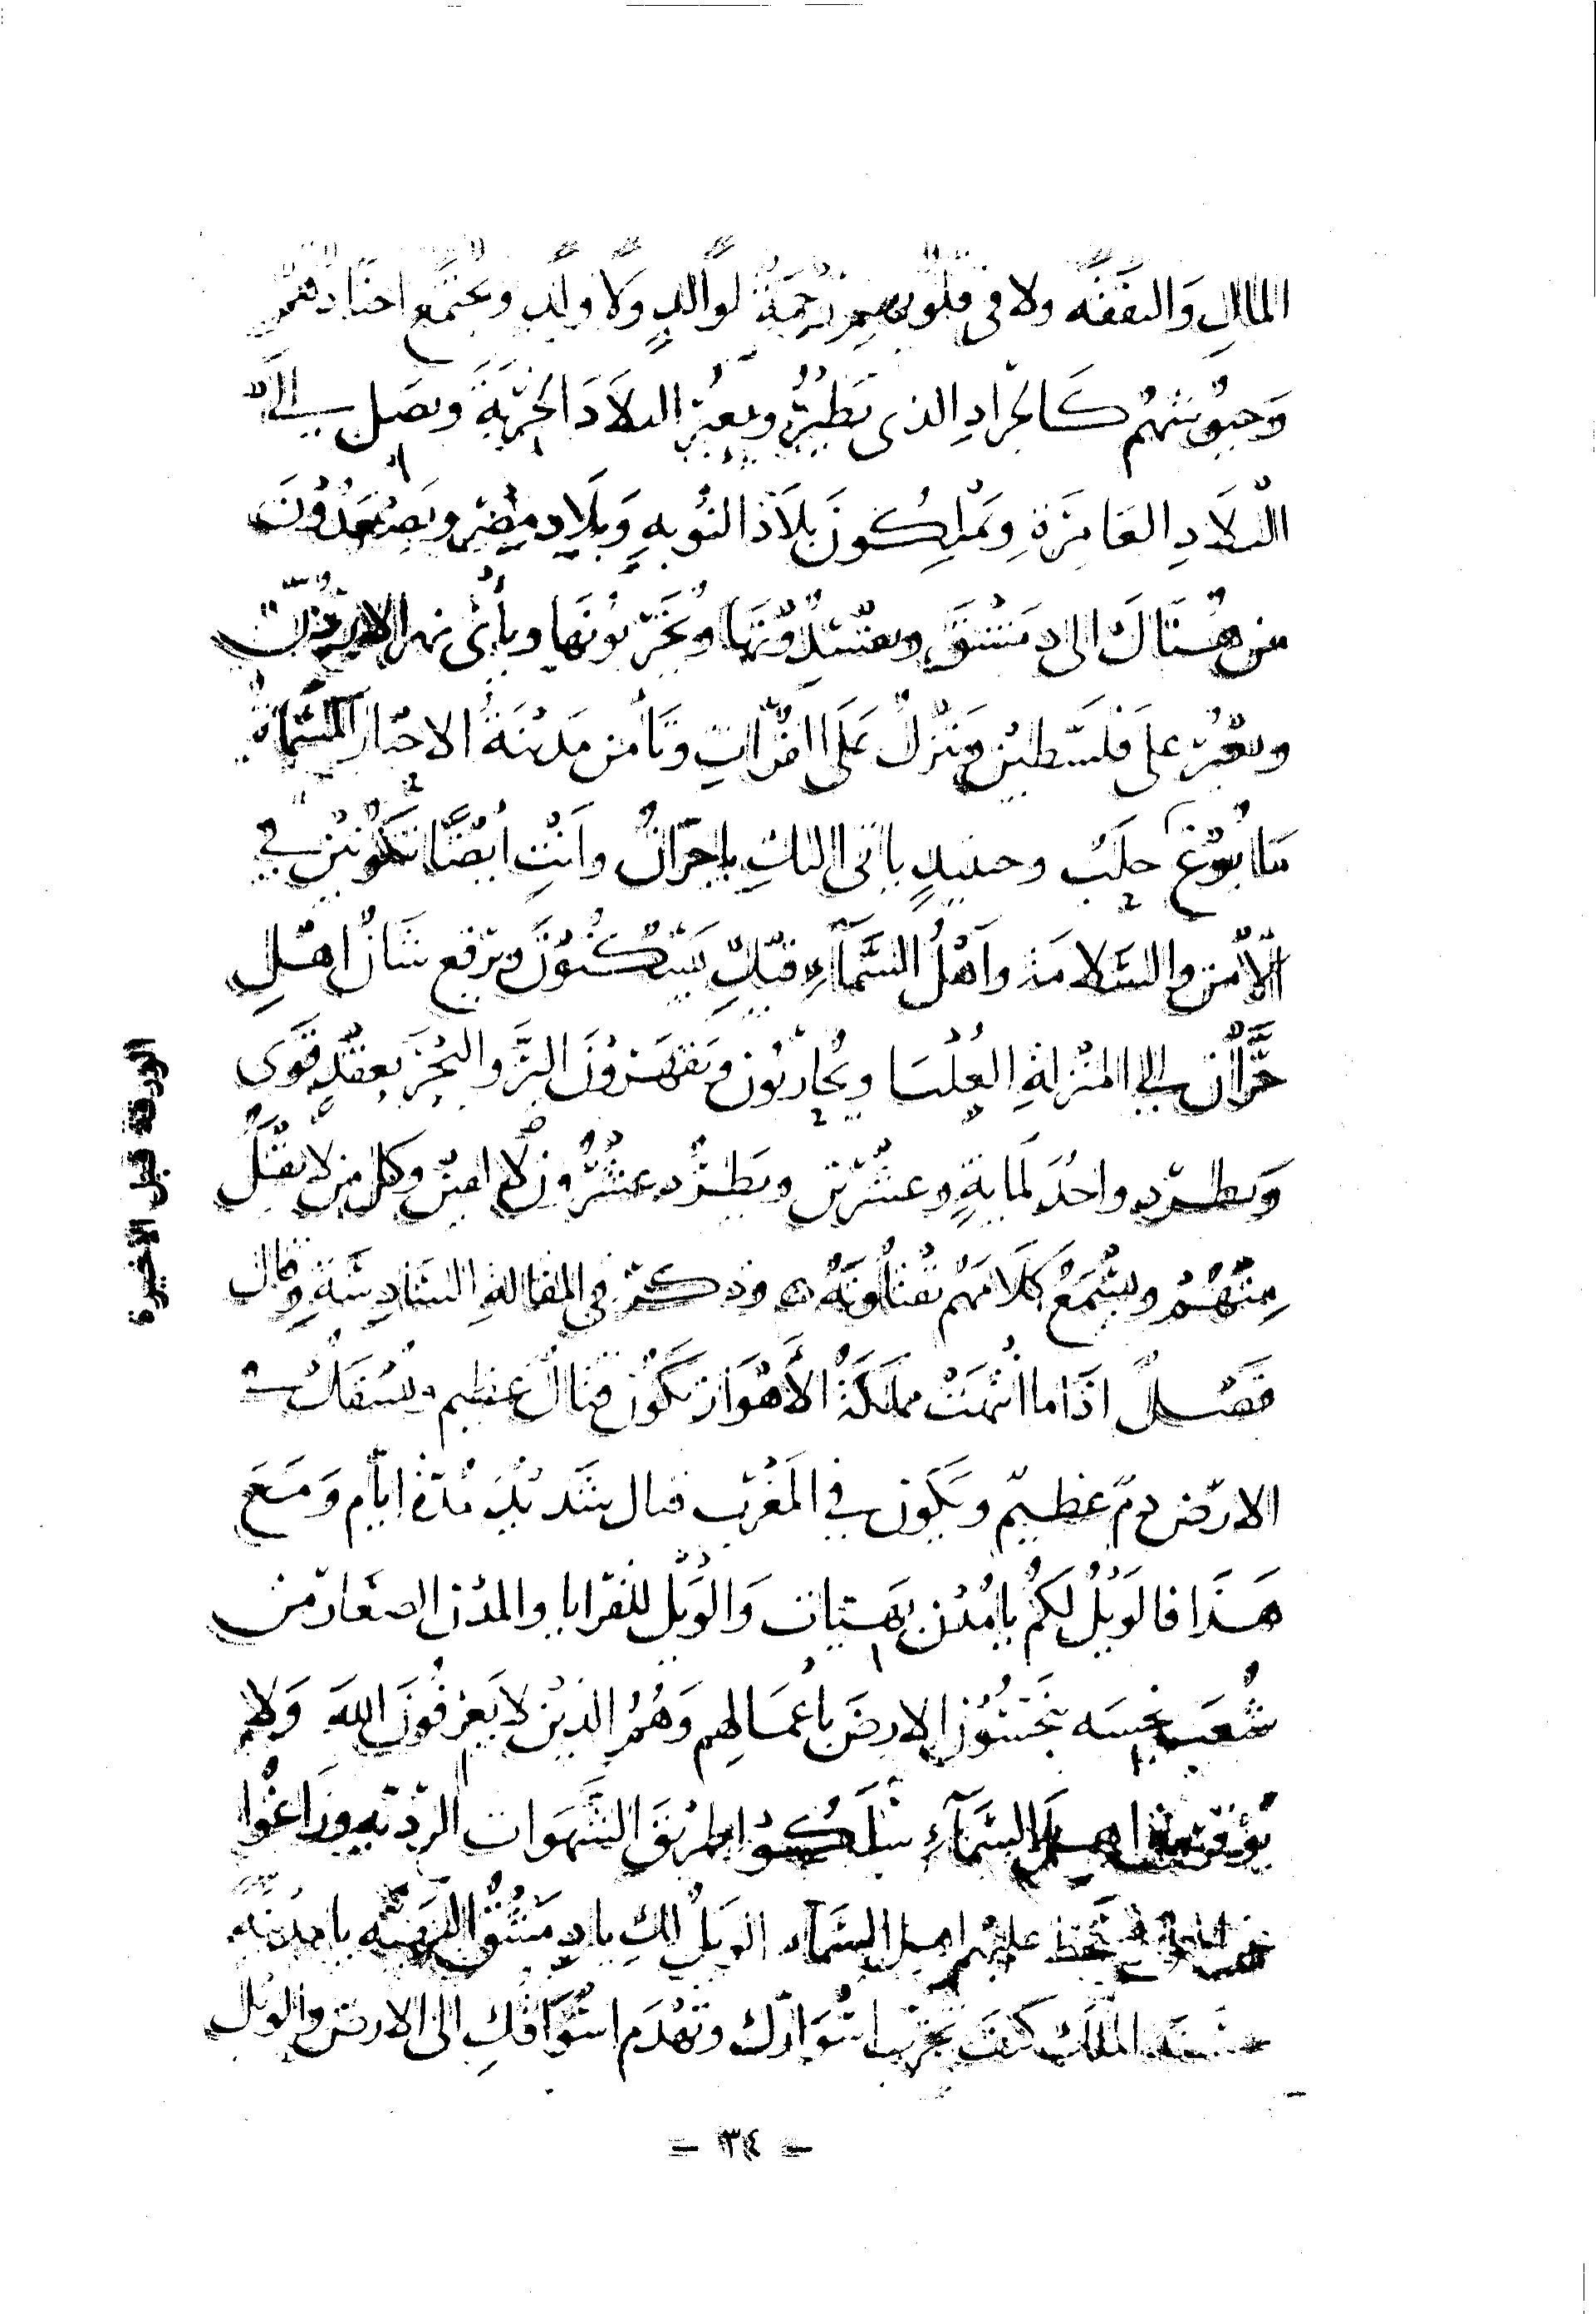 المال والنفقه ولا في قلوبهم رحمة لوالد ولا ولد وتجتمع اجنادهم
وجيوشهم كالجراد الذى يطير ويعبر البلاد الخربة ويصل الى
البلاد العامرة ويملكون بلاد النوبه وبلاد مصر ويصعدون
من هناك الى دمشق ويفسدونها ويخربونها وياتى نهر الاردن
ويعبر على فلسطين وينزل على الفرات وتامن مدينة الاحبار المسماة
مابوغ حلب وحينيذ ياتى اليك ياحران وانت ايضا تكونين في
الامن والسلامة واهل السماء فيك يسكنون ويرفع شان اهل
حران الى المنزلة العليا ويحاربون ويقهرون البر والبحر بعقد قوى
ويطرد واحد لماية وعشرين ويطرد عشرون لاميين وكل من لا يقبل
منهم ويسمع كلامهم يقتلونه ه وذكر في المقالة السادسة وقال
فصل اذا ما اتهمت مملكة الأهواز تكون قتال عظيم ويسفك في
الارض دم عظيم ويكون في المغرب قتال شديد مدة ايام ومع
هذا فالويل لكم يامدن بهيات والويل للقرايا والمدن الصغار من
شعب نجسه ينجسون الارض باعمالهم وهم الذين لا يعرفون الله ولا
اهل السماء سلكوا طريق الشهوات الرديه وزاغوا
عن الحق سخط عليهم اهل السماء الويل لك يادمشق البهيه يامدينه
الملك كيف تخرب اسوارك وتهدم اسواقك الى الارض والويل
الورقة قبل الاخيرة
— ٣٤ —